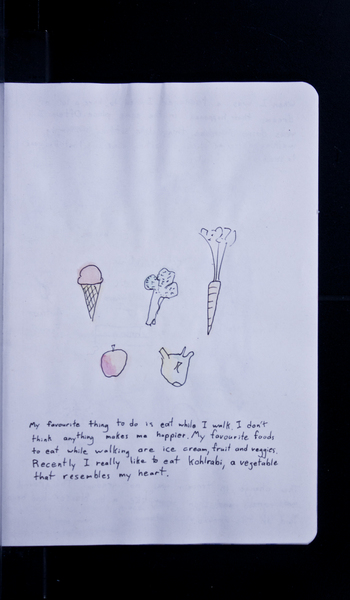 My favourite thing to do is eat while I walk. I don't
think anything makes me happier. My favourite foods
to eat while walking are ice cream, fruit and veggies.
Recently I really like to eat kohlrabi, a vegetable
that resembles my heart.